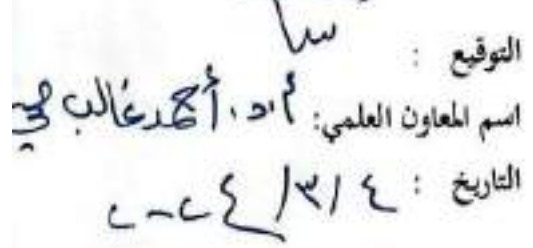 التوقيع :
اسم المعاون العلمي: أ.د. أحمد غالب
التاريخ : ٤ / ٣ / ٢٠٢٤